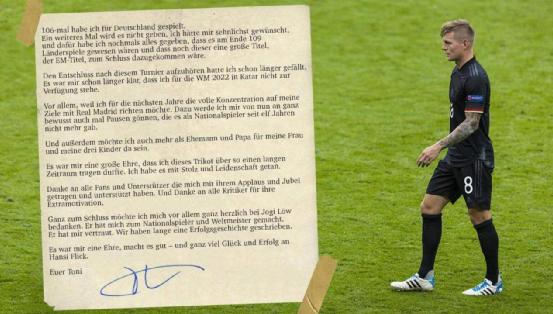 106-mal habe ich für Deutschland gespielt.
Ein weiteres Mal wird es nicht geben, ich hätte mir sehnlichst gewünscht,
und dafür habe ich nochmals alles gegeben, dass es am Ende 109
Länderspiele gewesen wären und dass noch dieser eine große Titel,
der EM-Titel, zum Schluss dazugekommen wäre.
Den Entschluss nach diesem Turnier aufzuhören hatte ich schon länger gefällt.
Es war mir schon länger klar, dass ich für die WM 2022 in Katar nicht zur
Verfügung stehe.
Vor allem, weil ich für die nächsten Jahre die volle Konzentration auf meine
Ziele mit Real Madrid richten möchte. Dazu werde ich mir von nun an ganz
bewusst auch mal Pausen gönnen, die es als Nationalspieler seit elf Jahren
nicht mehr gab.
Und außerdem möchte ich auch mehr als Ehemann und Papa für meine Frau
und meine drei Kinder da sein.
Es war mir eine große Ehre, dass ich dieses Trikot über so einen langen
Zeitraum tragen durfte. Ich habe es mit Stolz und Leidenschaft getan.
Danke an alle Fans und Unterstützer die mich mit ihrem Applaus und Jubel
getragen und unterstützt haben. Und Danke an alle Kritiker für ihre
Extramotivation.
Ganz zum Schluss möchte ich mich vor allem ganz herzlich bei Jogi Löw
bedanken. Er hat mich zum Nationalspieler und Weltmeister gemacht.
Er hat mir vertraut. Wir haben lange eine Erfolgsgeschichte geschrieben.
Es war mir eine Ehre, macht es gut – und ganz viel Glück und Erfolg an
Hansi Flick.
Euer Toni
8